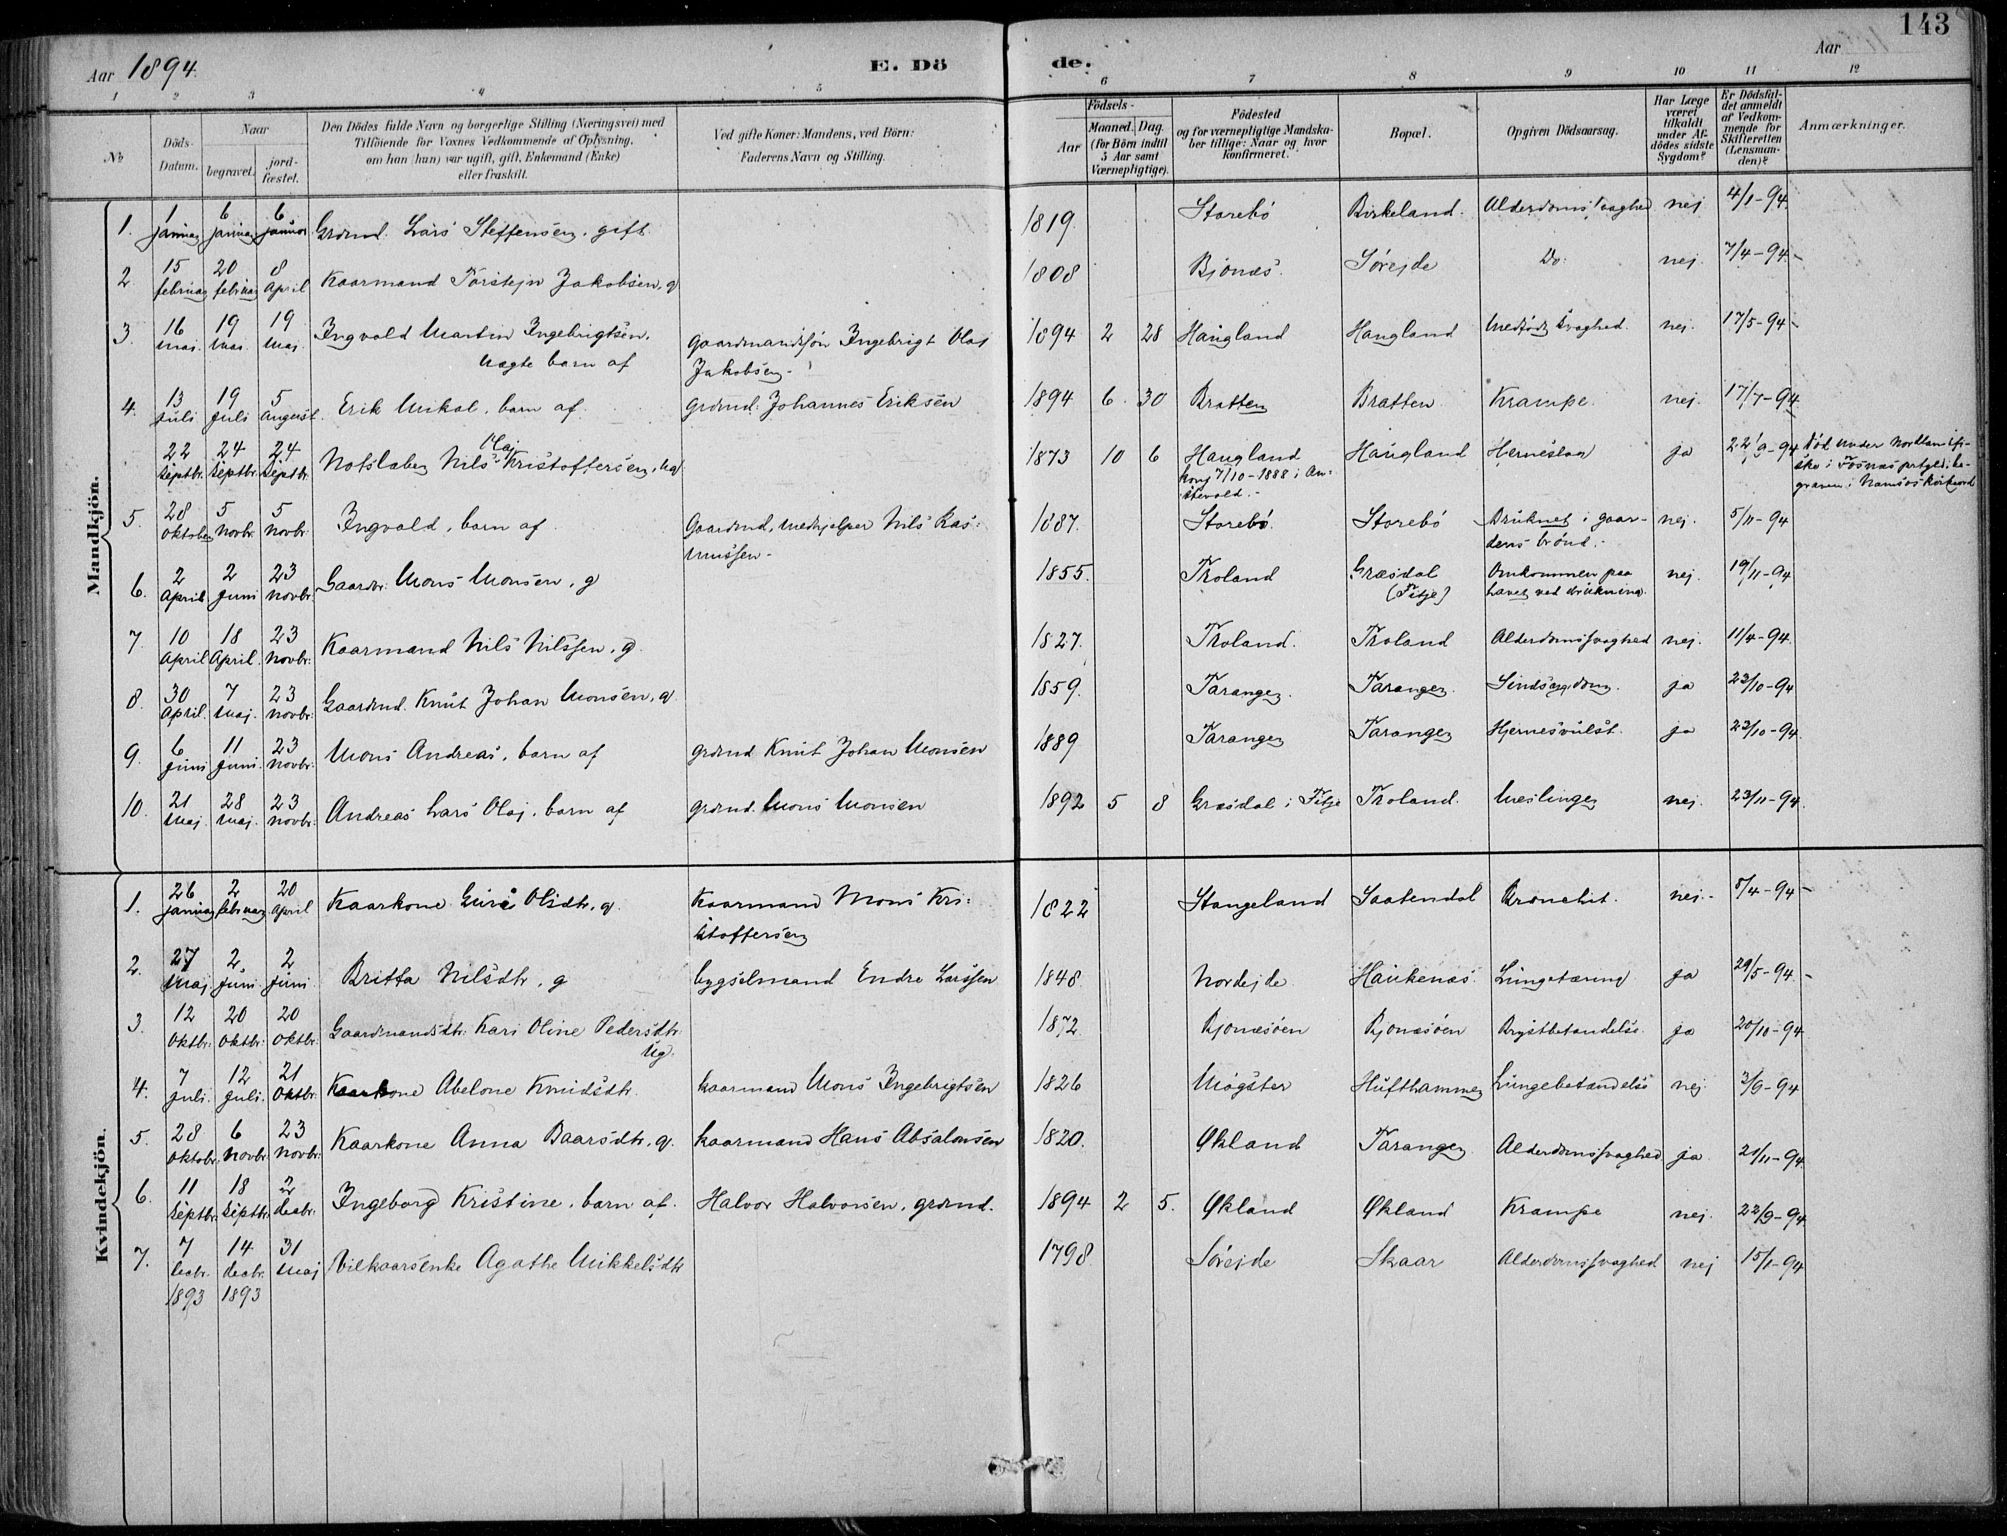 143
Aar 1894.
E. Döde.
Aar
1 2 3 4 5 6 7 8 9 10 11 12
№
Döds-Datum.
Naar
begravet.
jordfæstet.
Den Dödes fulde Navn og borgerlige Stilling (Næringsvei) med
Tilföiende for Voxnes Vedkommende af Oplysning,
om han (hun) var ugift, gift, Enkemand (Enke)
eller fraskilt.
Ved gifte Koner: Mandens, ved Börn:
Faderens Navn og Stilling.
Födsels-
Aar
Maaned. Dag.
(for Börn indtil
5 Aar samt
Værnepligtige).
Födested
og for værnepligtige Mandskaber tillige: Naar og hvor
konfirmeret.
Bopæl.
Opgiven Dödsaarsag.
Har Læge
været
tilkaldt
under Afdödes sidste
Sygdom?
Er Dödsfaldet anmeldt
af Vedkommende for
Skifteretten
(Lensmanden)?
Anmærkninger.
Mandkjön.
1. 1 januar 6 januar 6 januar Grdmd. Lars Steffensen, gift. 1819. Storebø Birkeland. Alderdomssvaghed nej 4/1-94.
2 15 februar 20 februar 8 April Kaarmand Torstejn Jakobsen, g 1808 Bjonæs. Sørejde Do. nej. 7/4-94.
3. 16 maj. 19 maj. 19 maj. Ingvald Martin Ingebrigtsen,
uægte barn af gaardmandssøn Ingebrigt Olaj
Jakobsen 1894 2 28 Haugland Haugland Medfødt svaghed. nej. 17/5-94
4. 13 juli 19 Juli 5 August. Erik Mikal, barn af grdmd: Johannes Eriksen 1894 6. 30 Bratten Bratten Krampe. nej. 17/7-94
22 septbr. 24 septbr. 24 septbr. Notslaber Nils Olaj Kristoffersen, ug 1873 10 6 Haugland
konf 7/10-1888 i Austevold. Haugland Hjerneslag ja 22/9-94 Død under Nordlandsfiske i Fosnæs prstgjld; begraven i Namsos Kirkegrd
5. 28 oktober 5 Novbr. 5 Novbr. Ingvald, barn af Gaardmd, medhjelper Nils Rasmussen 1887. Storebø. Storebø Druknet i gaardens brønd. nej. 5/11-94
6. 2 April 2 Juni 23 Novbr. Gaardbr: Mons Monsen, g 1855. Troland Græsdal
(Fitje) Omkommen paa
havet ved drukning. nej. 19/11-94
7. 10 April 18 April. 23 Novbr: Kaarmand Nils Nilssen, g. 1827. Troland. Troland Alderdomssvaghed nej. 11/4-94.
8. 30 April. 7 maj. 23 novbr: Gaardmd. Knut Johan Monsen, g. 1859. Taranger. Taranger. Sindssygdom. ja 23/10-94
9. 6 Juni 11 Juni. 23 Novbr. Mons Andreas, barn af grdmd Knut Johan Monsen 1889 Taranger Taranger Hjernesvulst. ja 23/10-94
10. 21 maj. 28 maj. 23 novbr: Andreas Lars Olaj, barn af grdmd. Mons Monsen 1892 5 8 Græsdal i Fitje Troland. Meslinger nej. 23/11-94.
Kvindekjön.
1. 26 januar 2 februar 20 April Kaarkone Guri Olsdtr, g. Kaarmand Mons Kristoffersen 1822 Stangeland Saatendal Bronchit. nej. 5/4-94
2. 27 Maj 2 Juni 2 Juni Britta Nilsdtr, g bygselmand Endre Larssen 1848 Nordejde Haukenæs. Lungetæring ja 29/5-94.
3. 12 oktbr. 20 oktbr. 20 oktbr. Gaardmandsdtr. Kari Oline Pedersdtr.
ug. 1872. Bjonæsøen Bjonæsøen Brystbetændelse. ja 20/10-94
4. 7 juli. 12 juli. 21 Oktbr. Kaarkone Abelone Knudsdtr. kaarmand Mons Ingebrigtsen 1826 Møgster Hufthammer Lungebetændelse nej 3/9-94
5. 28 oktobr. 6 Novbr. 23 Novbr. Kaarkone Anna Baarsdtr, g. kaarmand Hans Absalonsen 1820. Økland Taranger Alderdomssvaghed ja 21/11-94
6. 11 septbr. 18 septbr. 2 decbr. Ingeborg Kristine, barn af. Halvor Halvorsen, grdmd. 1894 2 5. Økland Økland Krampe nej. 22/9-94
7. 7 decbr. 1893 14 decbr. 1893 31 maj Vilkaarsenke Agathe Mikkelsdtr 1798. Sørejde Skaar Alderdomssvaghed nej 15/1-94